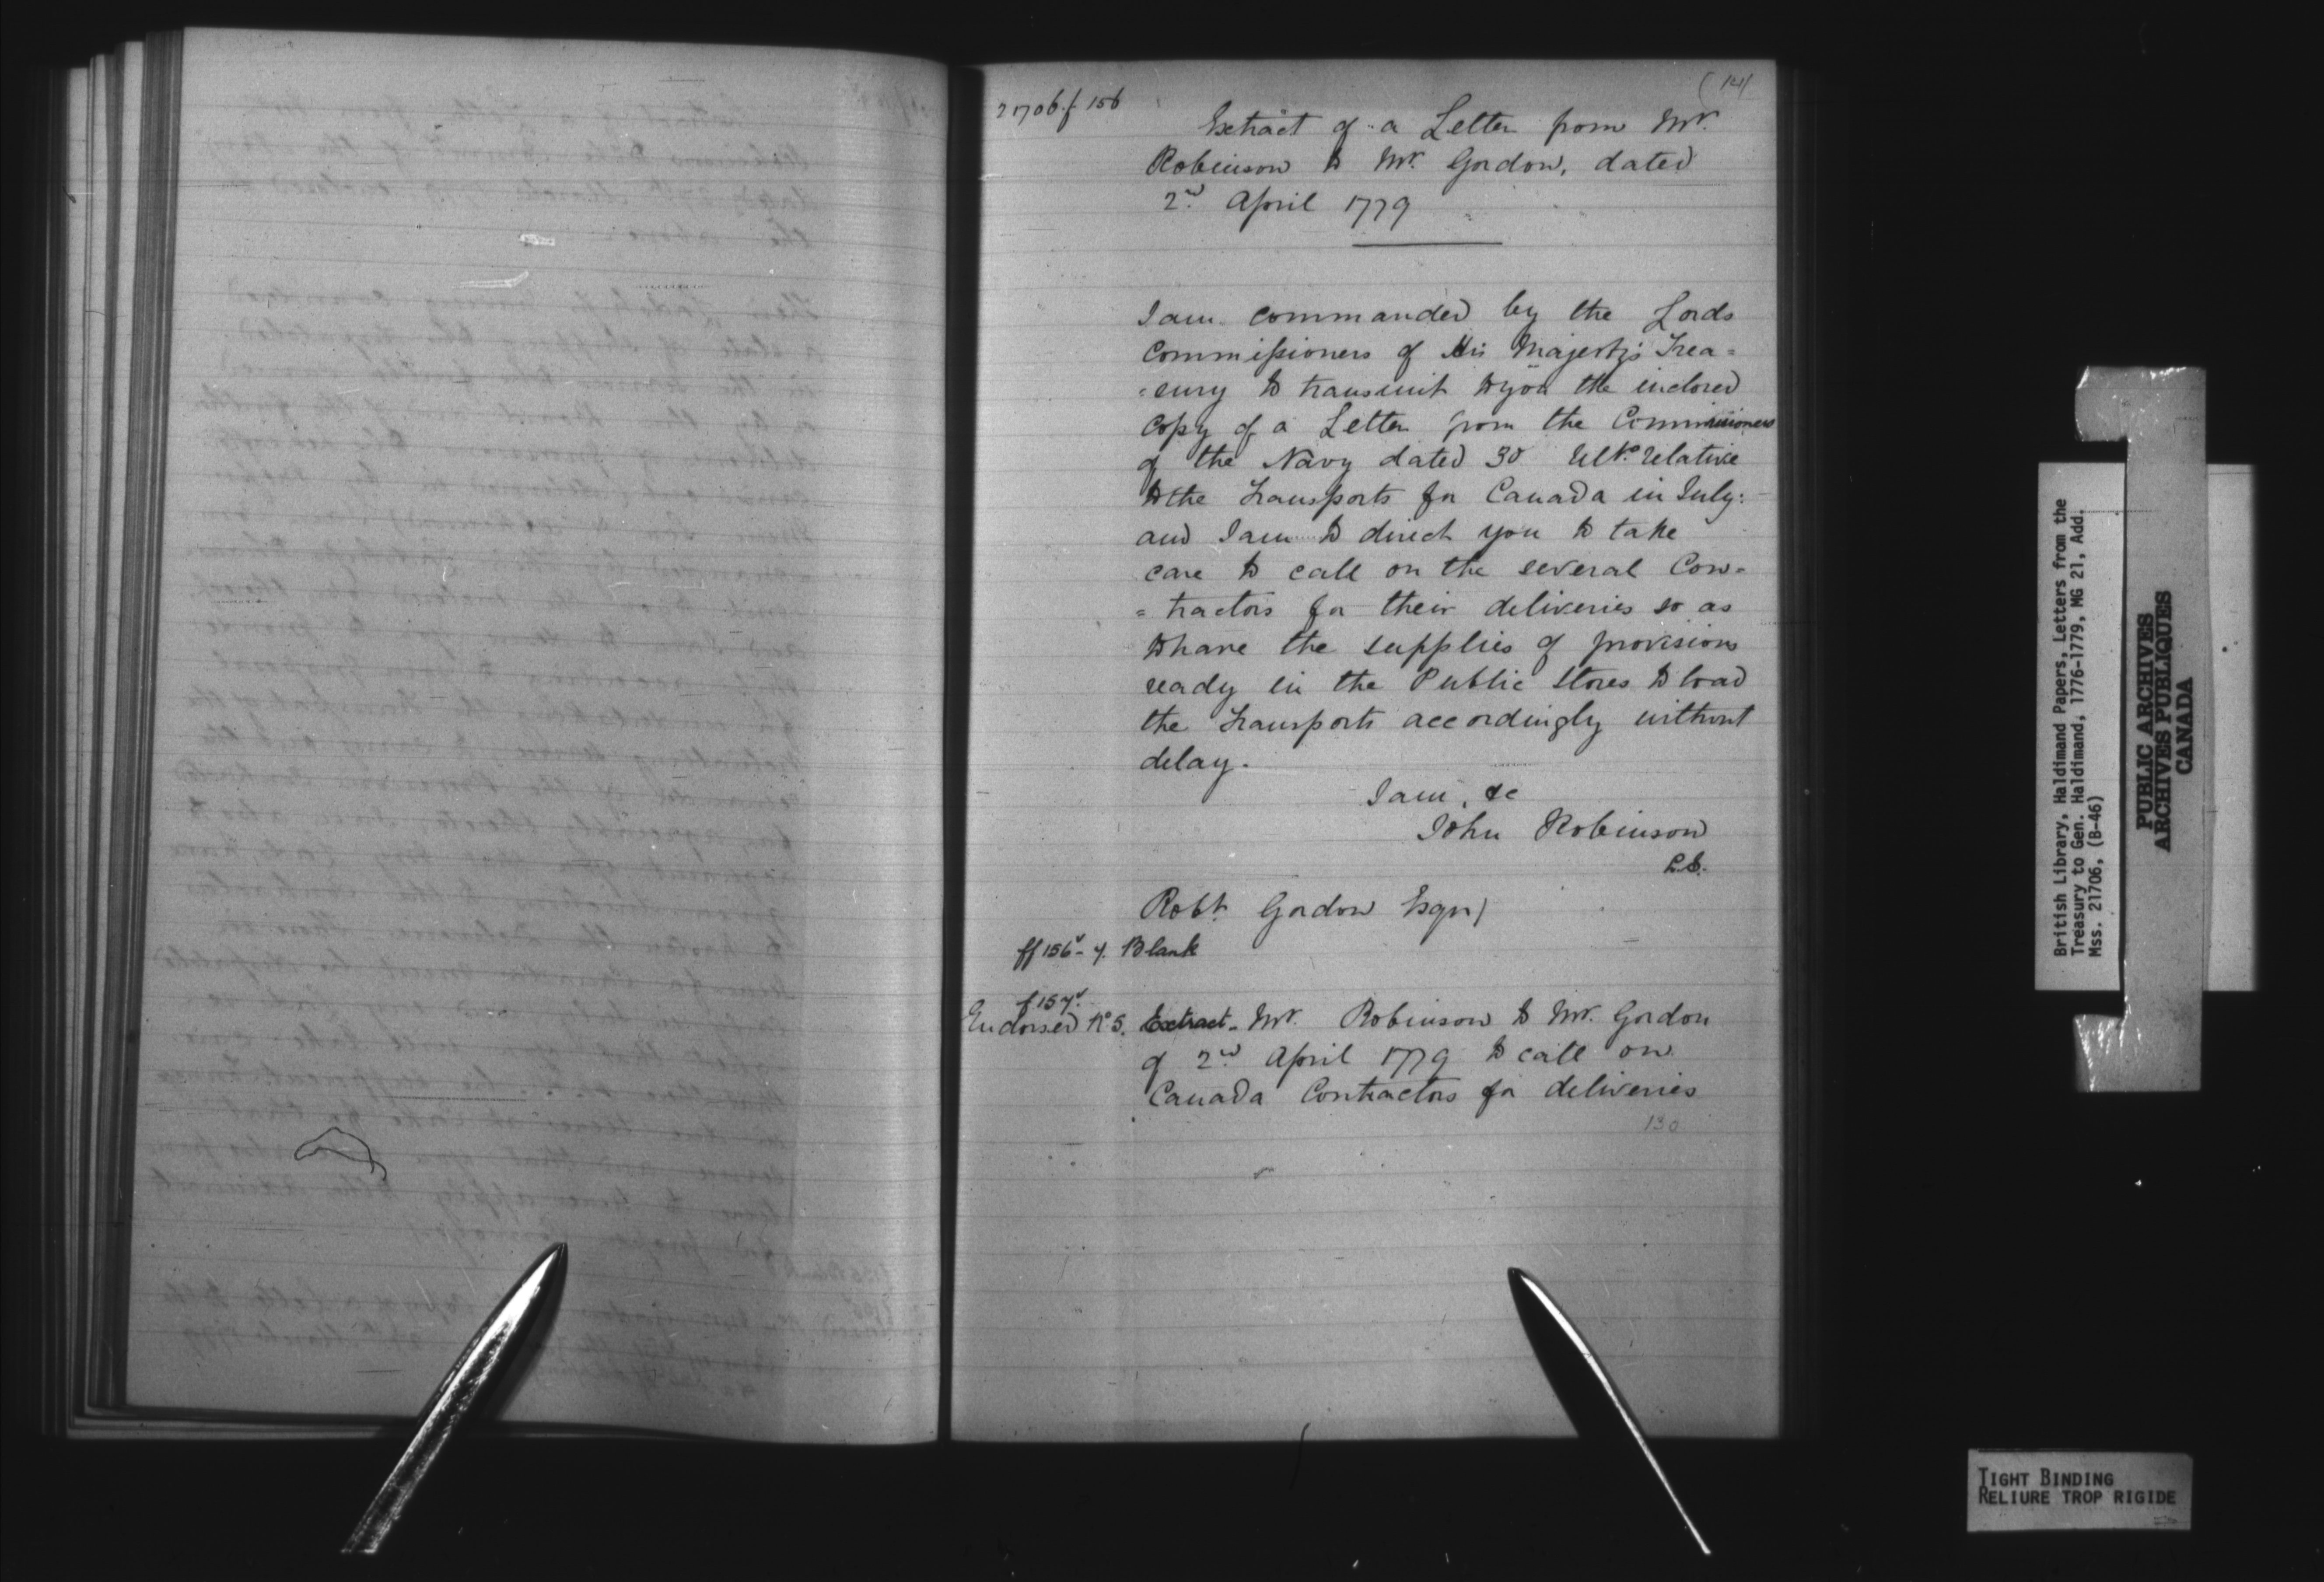 21706 f 156
(141)
Extract of a Letter from Mr.
Robinson to Mr. Gordon, dated
2nd April 1779
I am commanded by the Lords
Commissioners of His Majesty's Trea=
=sury to transmit to you the inclosed
Copy of a Letter from the Commissioners
of the Navy dated 30 Ulto. relative
to the Transports for Canada in July:
and I am to direct you to take
care to call on the several Con=
=tractors for their deliveries so as
to have the supplies of provisions
ready in the Public Stores to load
the Transports accordingly without
delay.
I am, &c
John Robinson
Robt. Gordon Esqr)
ff 156v - 7. Blank
f 157v.
Endorsed No 5. Extract - Mr. Robinson to Mr. Gordon
of 2nd April 1779 to call on
Canada Contractors for deliveries
130
British Library, Haldimand Papers, Letters from the
Treasury to Gen. Haldimand, 1776-1779, MG 21, Add.
Mss. 21706, (B-46)
PUBLIC ARCHIVES
ARCHIVES PUBLIQUES
CANADA
TIGHT BINDING
RELIURE TROP RIGIDE